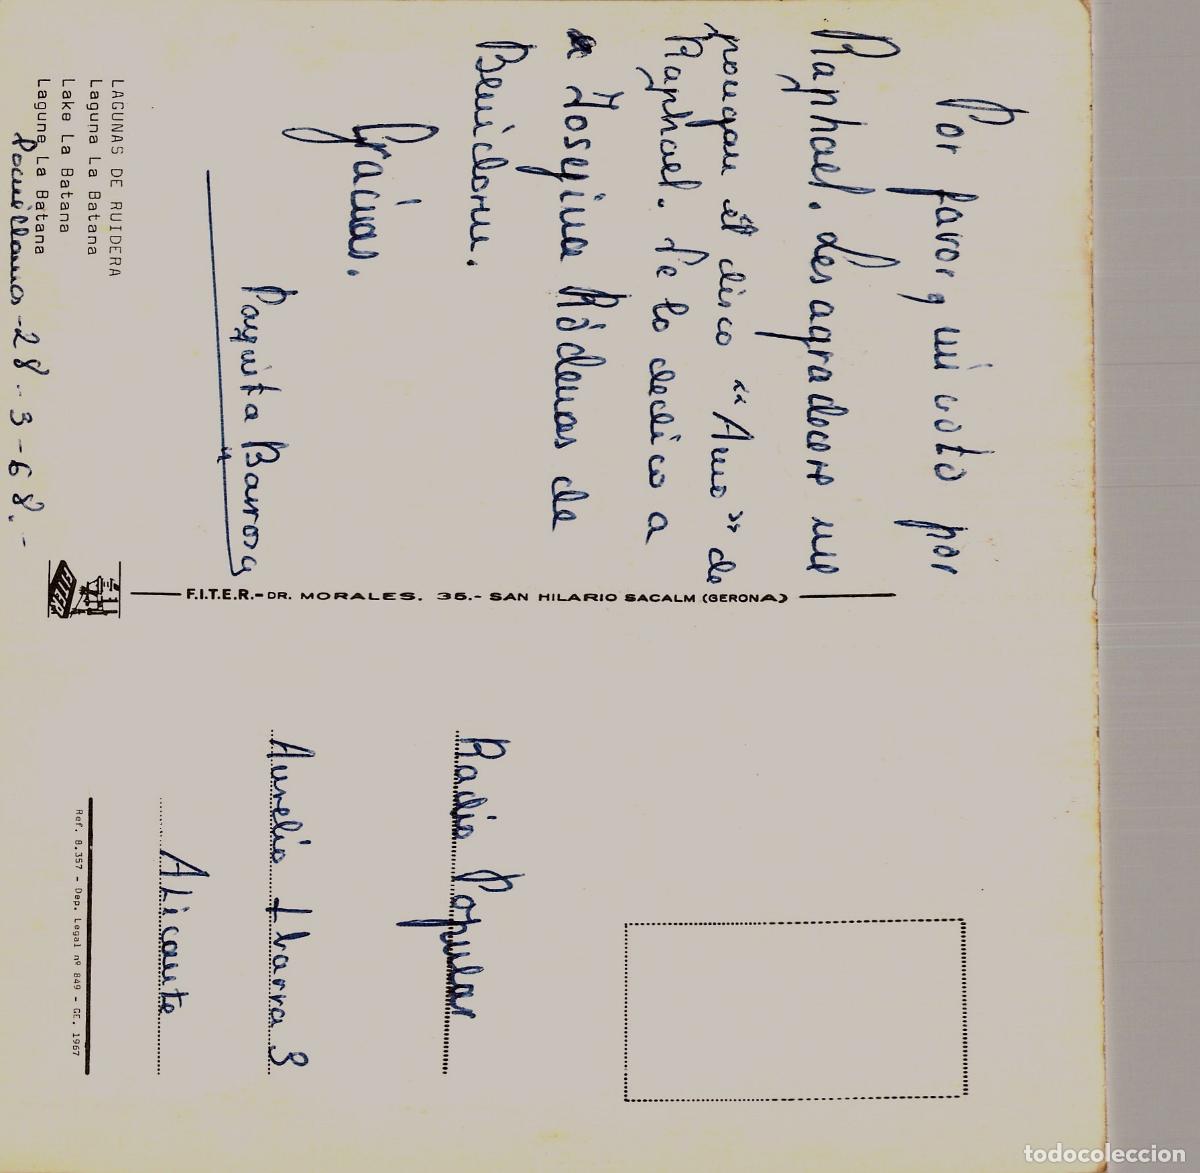 LAGUNAS DE RUIDERA
Laguna La Batana
Lake La Batana
Lagune La Batana
28-3-68.-
Por favor, mi voto por
Raphael. Les agradecere me
pongan el disco "Amo" de
Raphael. Se lo dedico a
a Josefina Ródenas de
Benidorm.
Gracias.
Paquita Barrosa
F.I.T.E.R.-DR. MORALES. 35.- SAN HILARIO SACALM (GERONA)
FITER
Radio Popular
Aurelio Ibarra 3
Alicante
Ref. 8.357 - Dep. Legal nº 849 - GE. 1967
todocoleccion